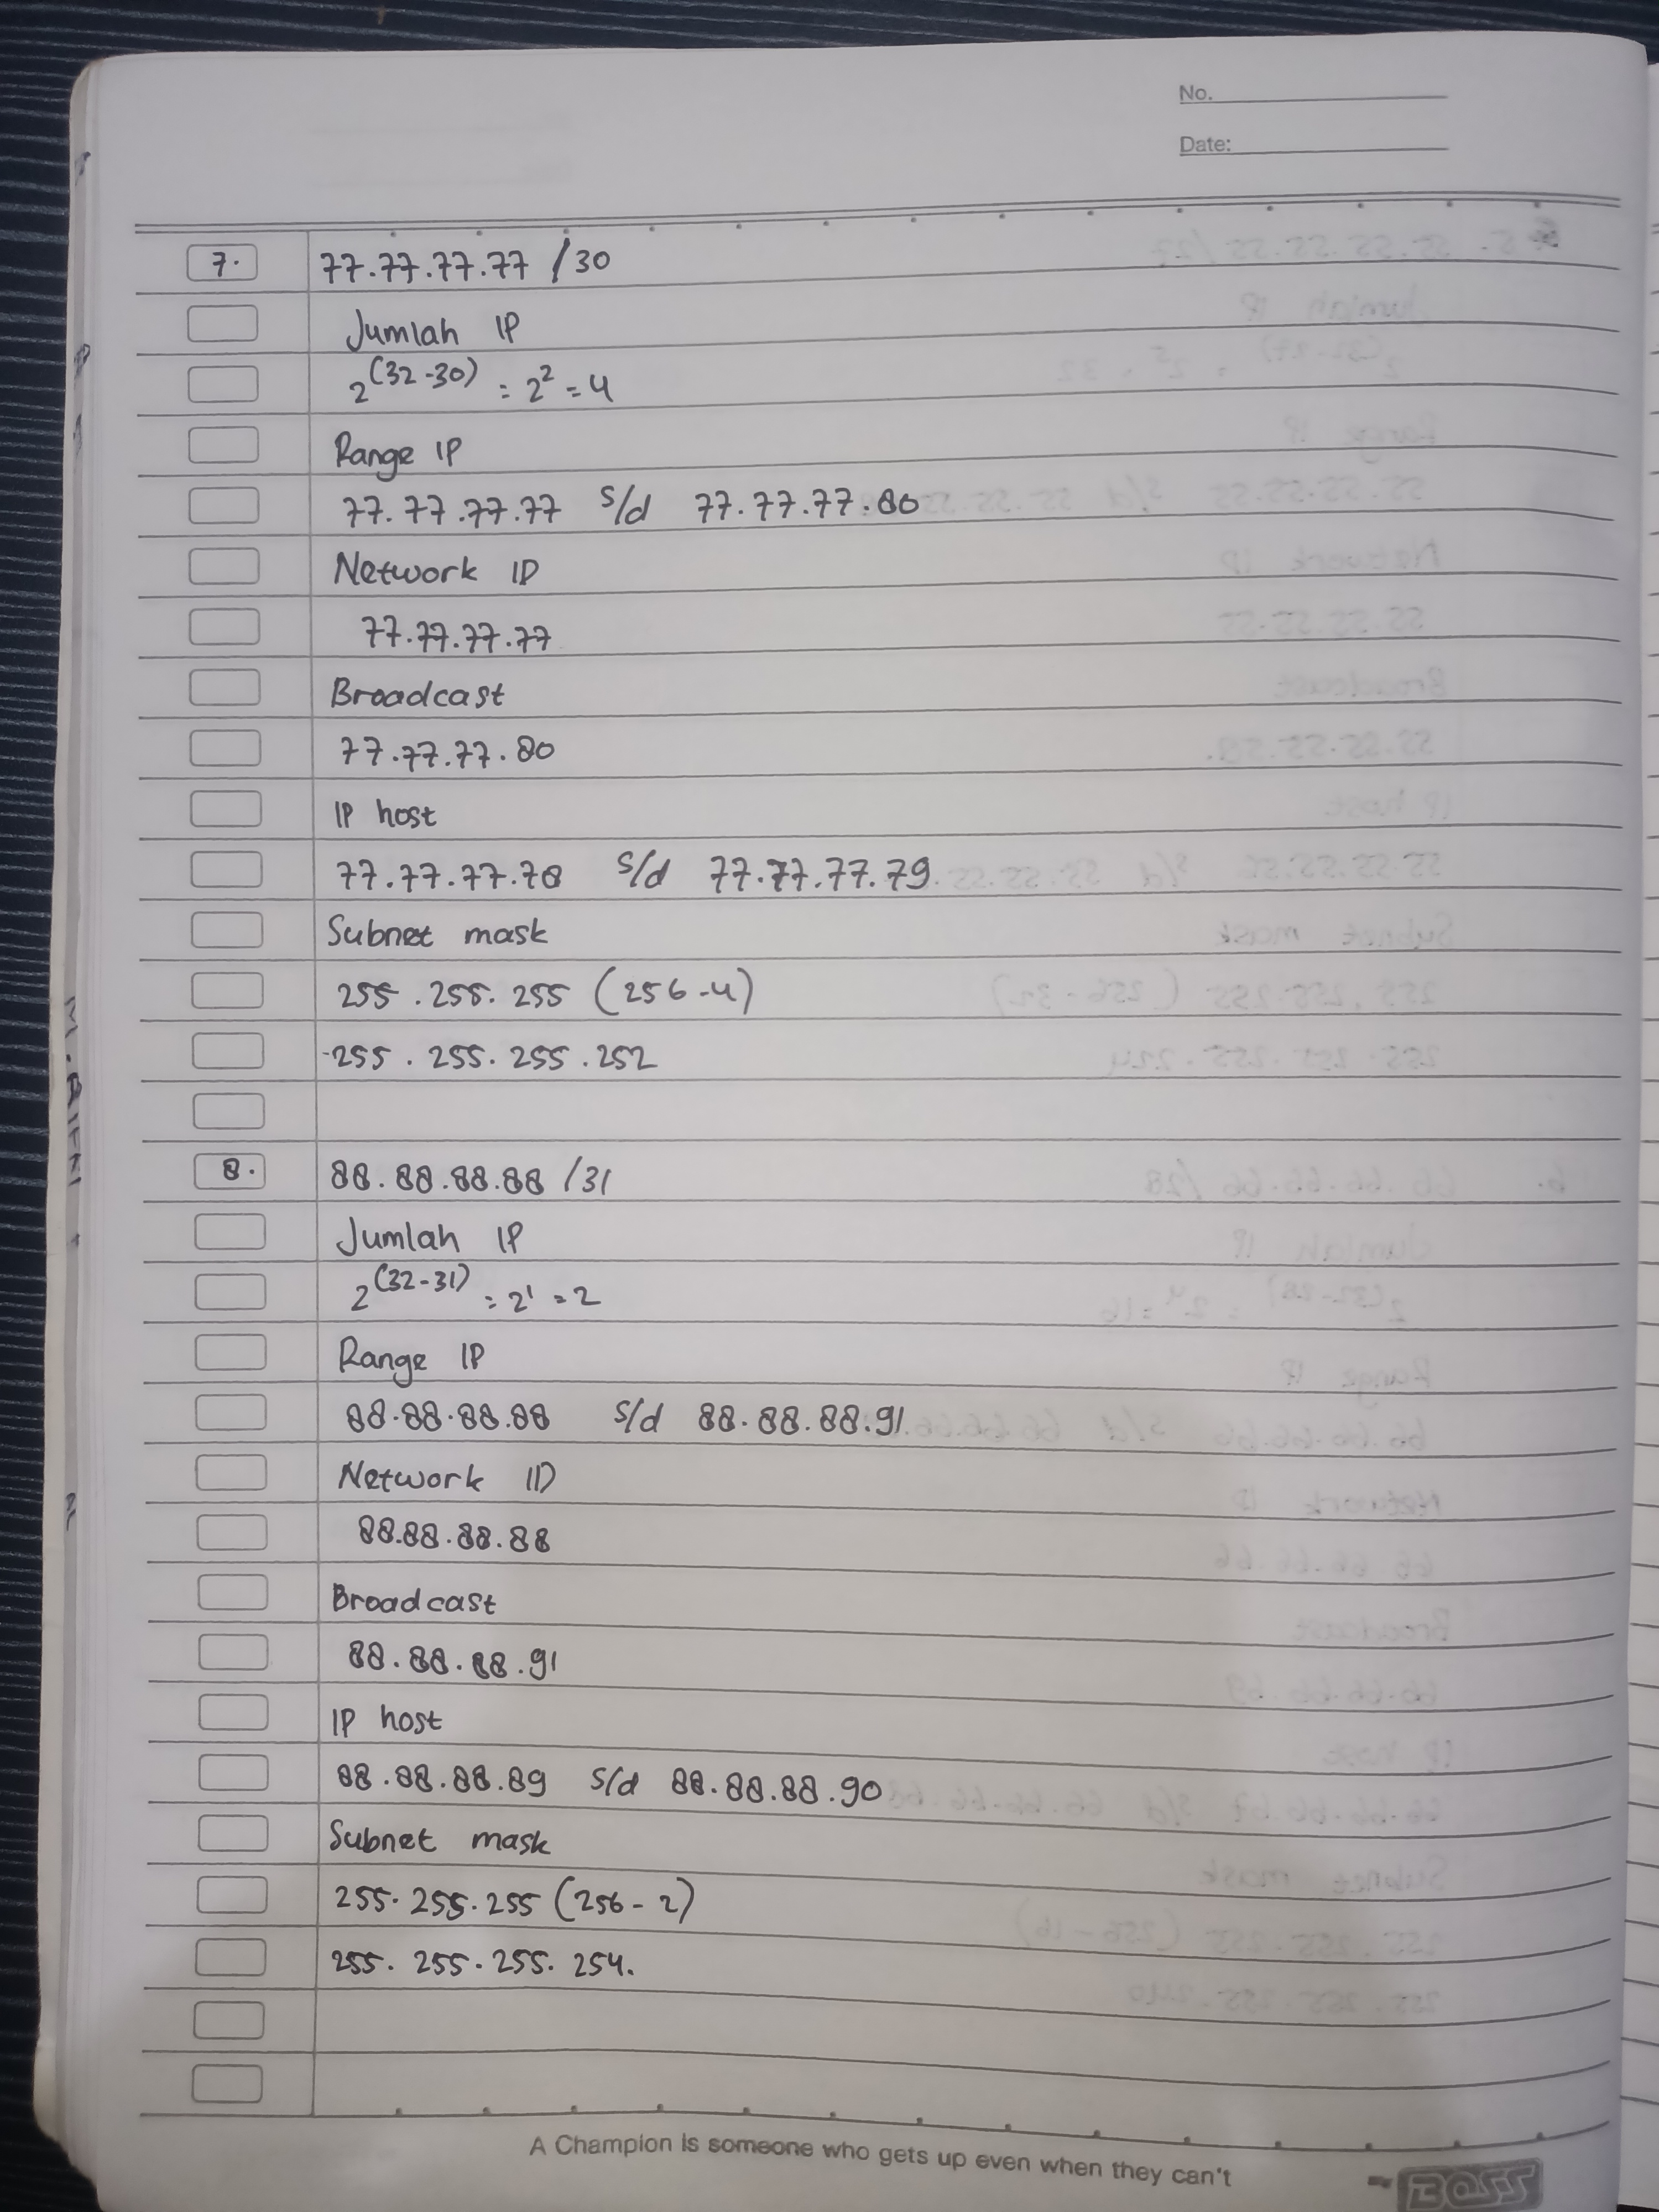 No.
Date:
7. 77.77.77.77 /30
Jumlah IP
2^(32-30) = 2^2 = 4
Range IP
77.77.77.77 s/d 77.77.77.80
Network ID
77.77.77.77
Broadcast
77.77.77.80
IP host
77.77.77.78 s/d 77.77.77.79
Subnet mask
255.255.255 (256-4)
255.255.255.252
8. 88.88.88.88 /31
Jumlah IP
2^(32-31) = 2^1 = 2
Range IP
88.88.88.88 s/d 88.88.88.91
Network ID
88.88.88.88
Broadcast
88.88.88.91
IP host
88.88.88.89 s/d 88.88.88.90
Subnet mask
255.255.255 (256-2)
255.255.255.254.
A Champion is someone who gets up even when they can't
BOSS